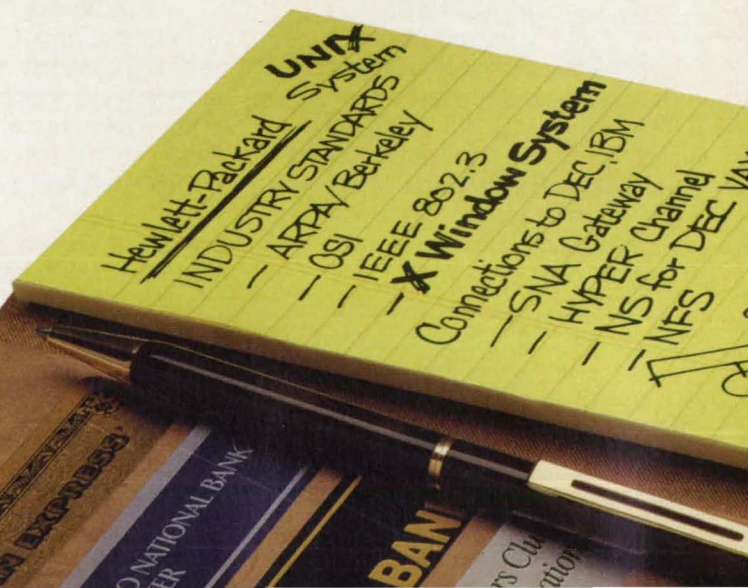 UNIX
System
Hewlett-Packard
INDUSTRY STANDARDS
- ARPA/Berkeley
- OSI
- IEEE 802.3
- X Window System
Connections to DEC, IBM
- SNA Gateway
- HYPER Channel
- NS for DEC VAX
- NFS
EXPRESS
NATIONAL BANK
BAN